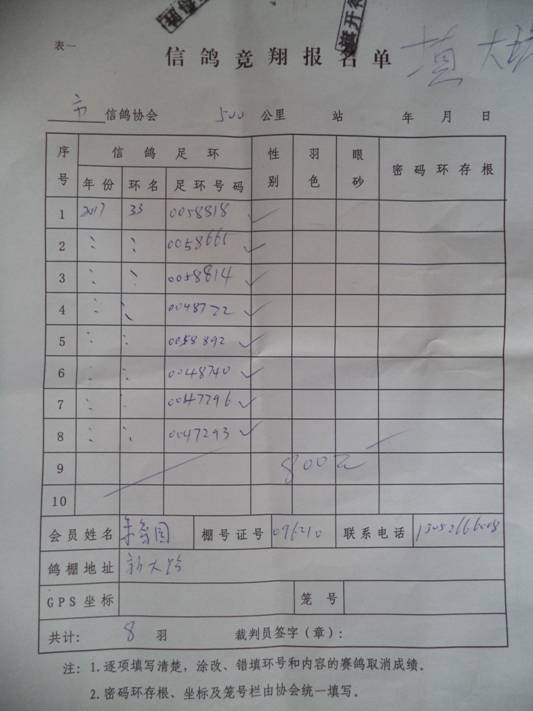 表一
信鸽竞翔报名单
填大
市信鸽协会 500 公里 站 年 月 日
序号 信鸽足环 性别 羽色 眼砂 密码环存根
年份 环名 足环号码
1 2017 33 0058818 ✓
2 〃 〃 0058661 ✓
3 〃 〃 0058814 ✓
4 〃 〃 0048722 ✓
5 〃 〃 0058892 ✓
6 〃 〃 0048740 ✓
7 〃 〃 0047296 ✓
8 〃 〃 0047293 ✓
9 800元
10
会员姓名 棚号证号 096210 联系电话
鸽棚地址 新大路
GPS坐标 笼号
共计: 8 羽 裁判员签字(章):
注: 1.逐项填写清楚，涂改、错填环号和内容的赛鸽取消成绩。
2.密码环存根、坐标及笼号栏由协会统一填写。